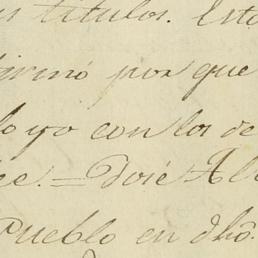 títulos. Esto
por que
lo yo con los de
ce. = José Al
Pueblo en dhô.